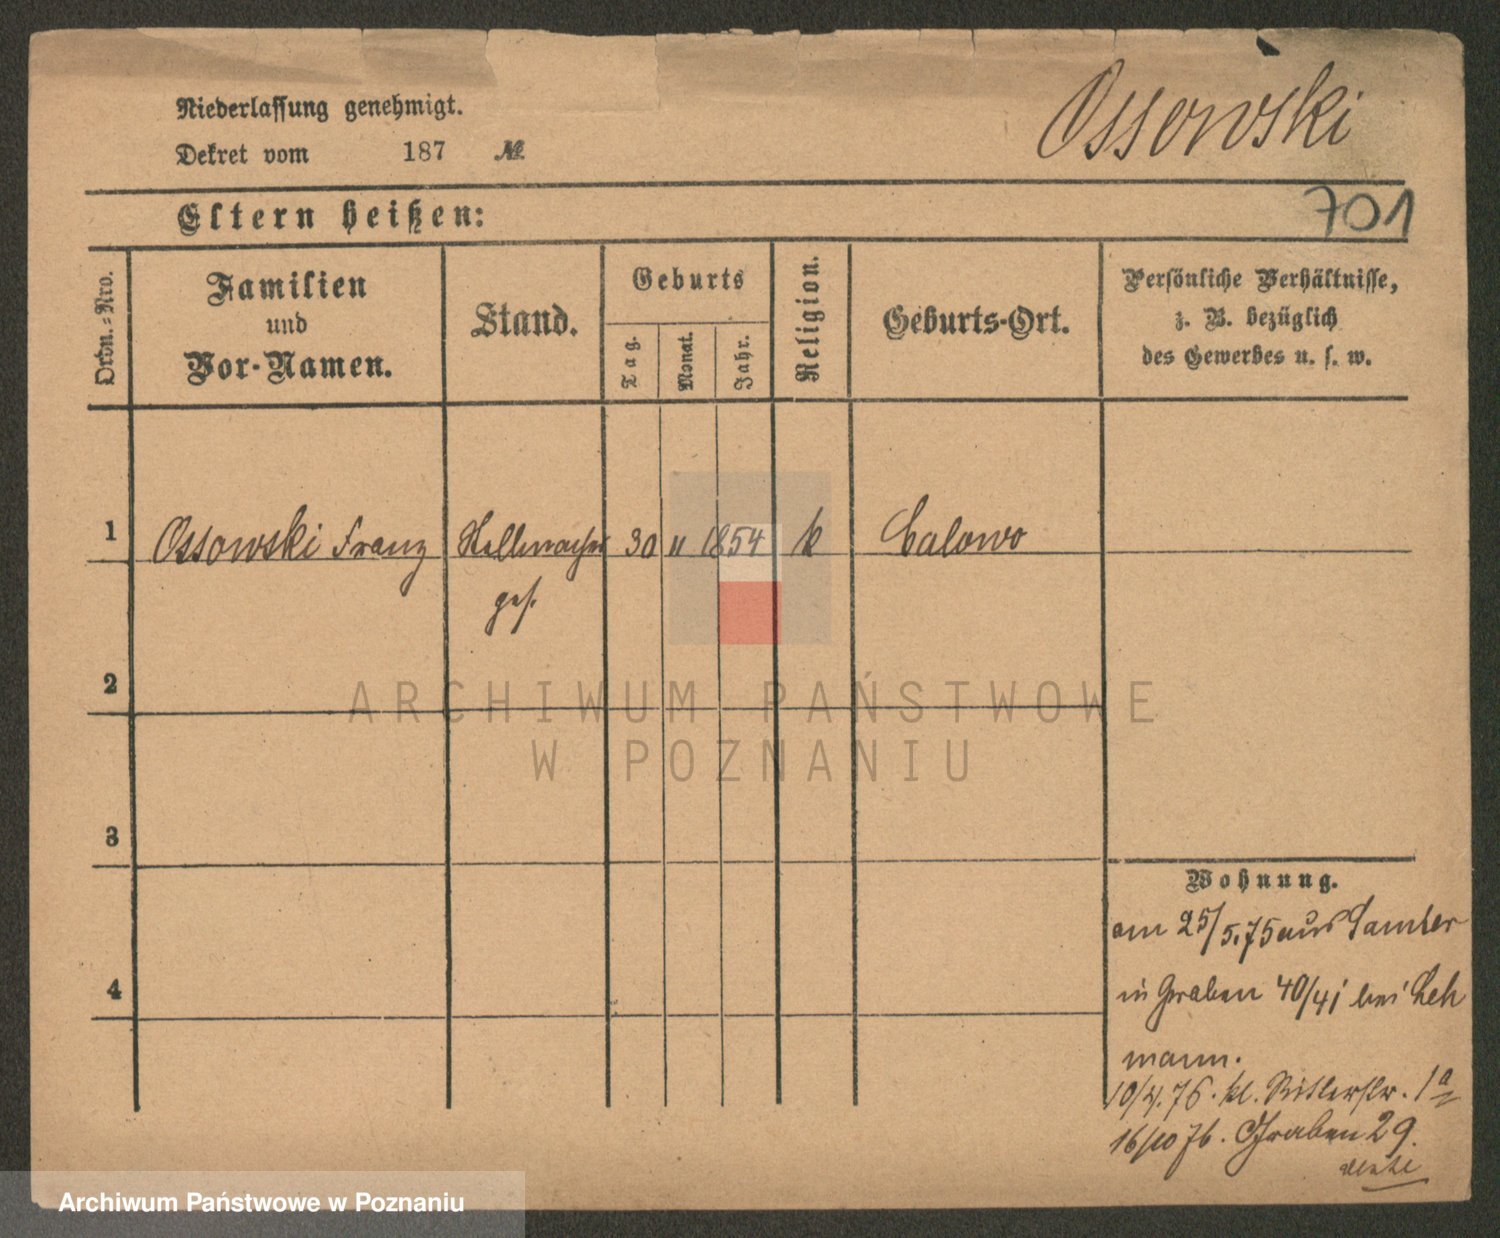 Ossowski
Niederlassung genehmigt.
Dekret vom 187 №
701
Eltern heißen:
Ordn.-Nro.
Familien
und
Vor-Namen.
Stand.
Geburts
Tag.
Monat.
Jahr.
Religion.
Geburts-Ort.
Persönliche Verhältnisse,
z. B. bezüglich
des Gewerbes u. s. w.
1 Ossowski Franz Stellmacher 30 1854 k
ges.
2
3
4
Wohnung.
am 25/5.75 aus Samter
in Graben 40/41 bei Leh
mann.
10/4.76. kl. Ritterstr. 1a
16/10 76. Graben 29.
ARCHIWUM PAŃSTWOWE
W POZNANIU
Archiwum Państwowe w Poznaniu